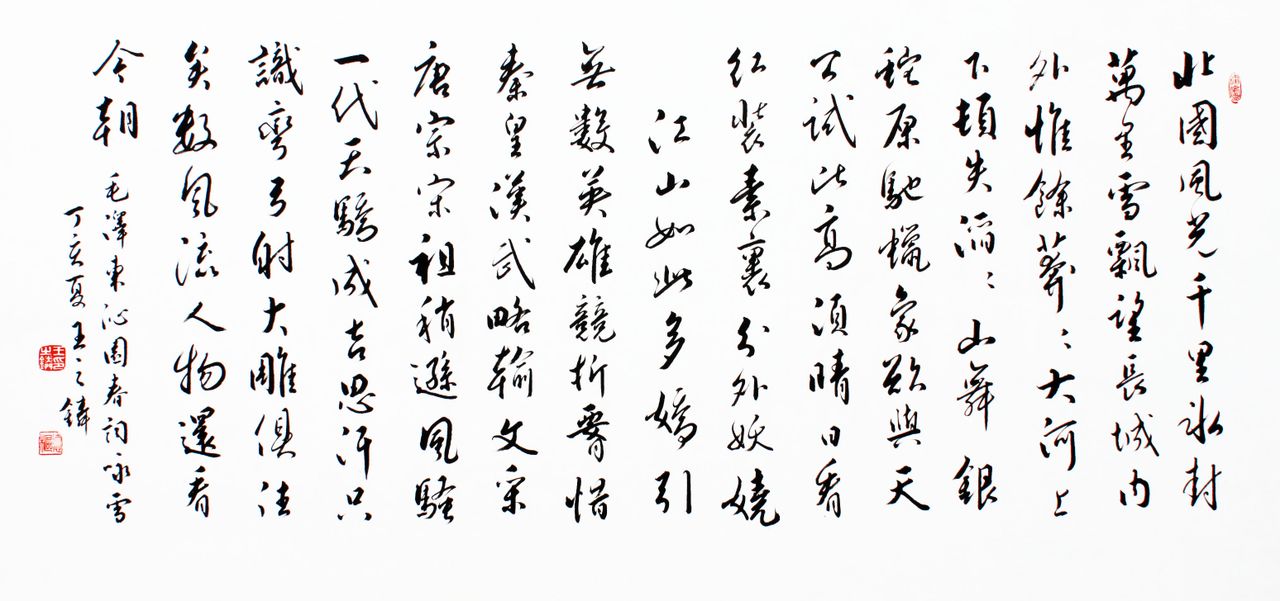 北國風光千里冰封
萬里雪飄望長城内
外惟餘莽〻大河上
下頓失滔〻山舞銀
蛇原馳蠟象欲與天
公試比高須晴日看
红裝素裹分外妖嬈
江山如此多嬌引
無數英雄競折腰惜
秦皇漢武略輸文采
唐宗宋祖稍遜風騷
一代天驕成吉思汗只
識彎弓射大雕俱往
矣数風流人物還看
今朝 毛澤東沁園春詞咏雪
丁亥夏王之